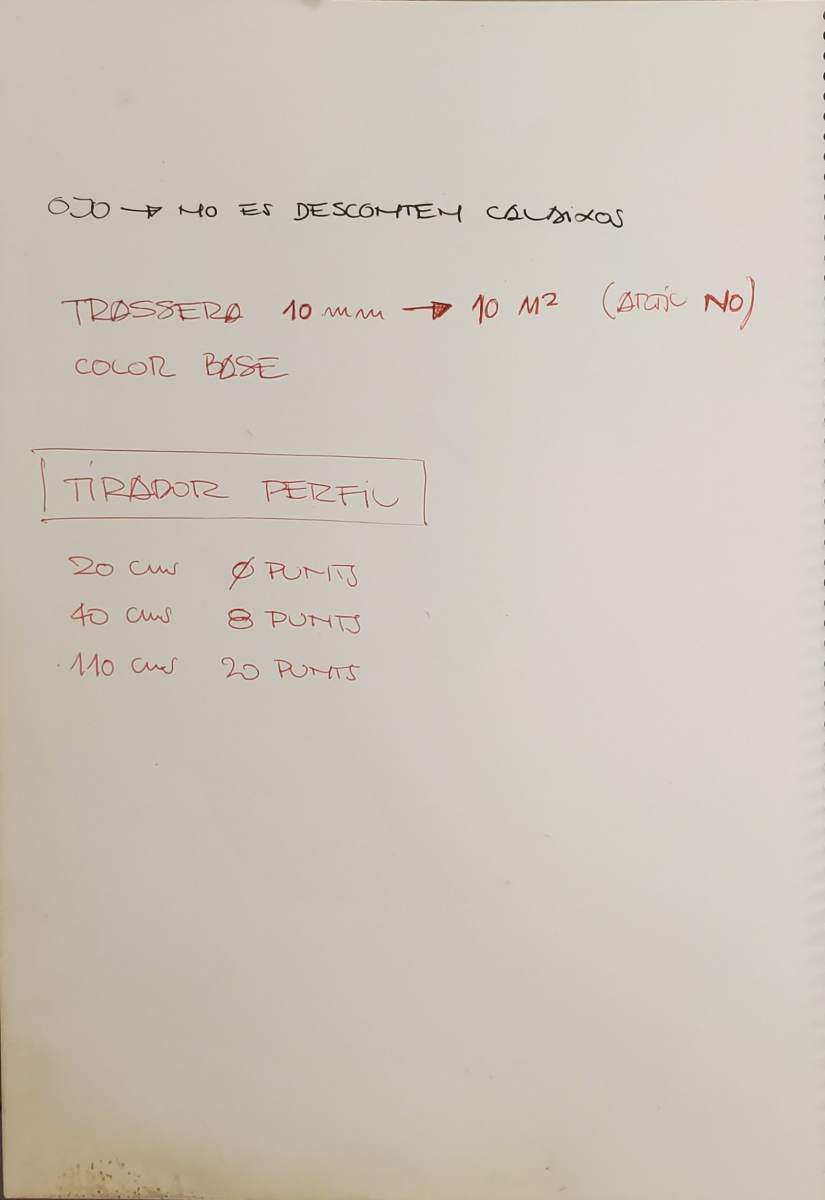 OJO → NO ES DESCOMTEM CALAIXOS
TRASSERA 10 mm → 10 M² (ARTIC NO)
COLOR BASE
TIRADOR PERFIL
20 cms Ø PUNTS
40 cms 8 PUNTS
110 cms 20 PUNTS